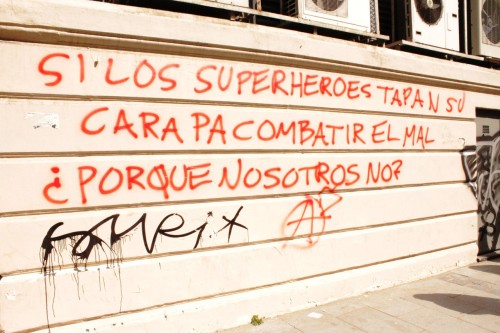 SI LOS SUPERHEROES TAPAN SU
CARA PA COMBATIR EL MAL
¿PORQUE NOSOTROS NO?